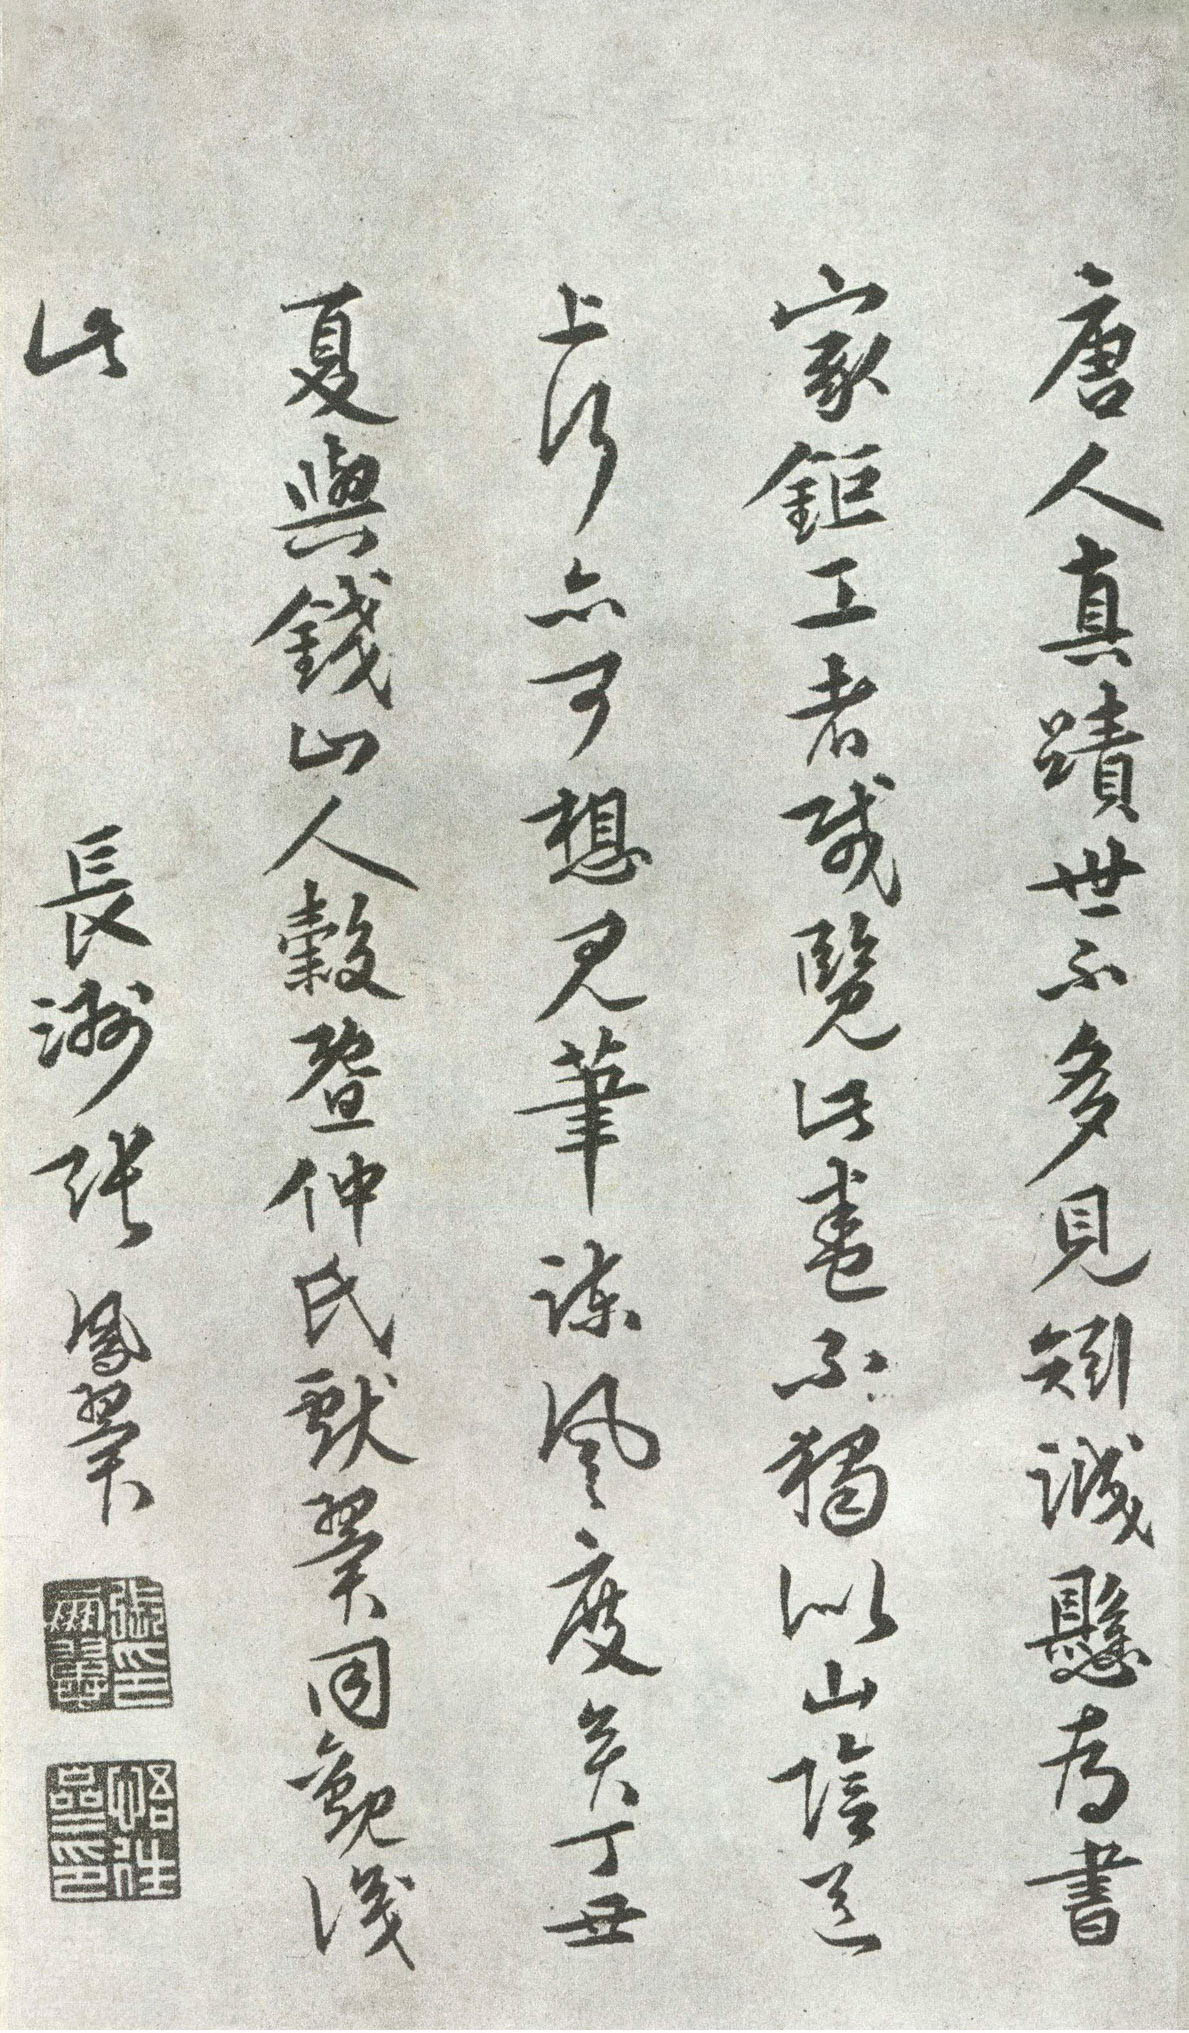 唐人真蹟世不多見矧誠懸為書
家鉅工者哉覽此卷不獨以山陰道
上行亦可想見筆諫風度矣丁丑
夏與錢山人穀暨仲氏獻翼同觀識
此
長洲張鳳翼